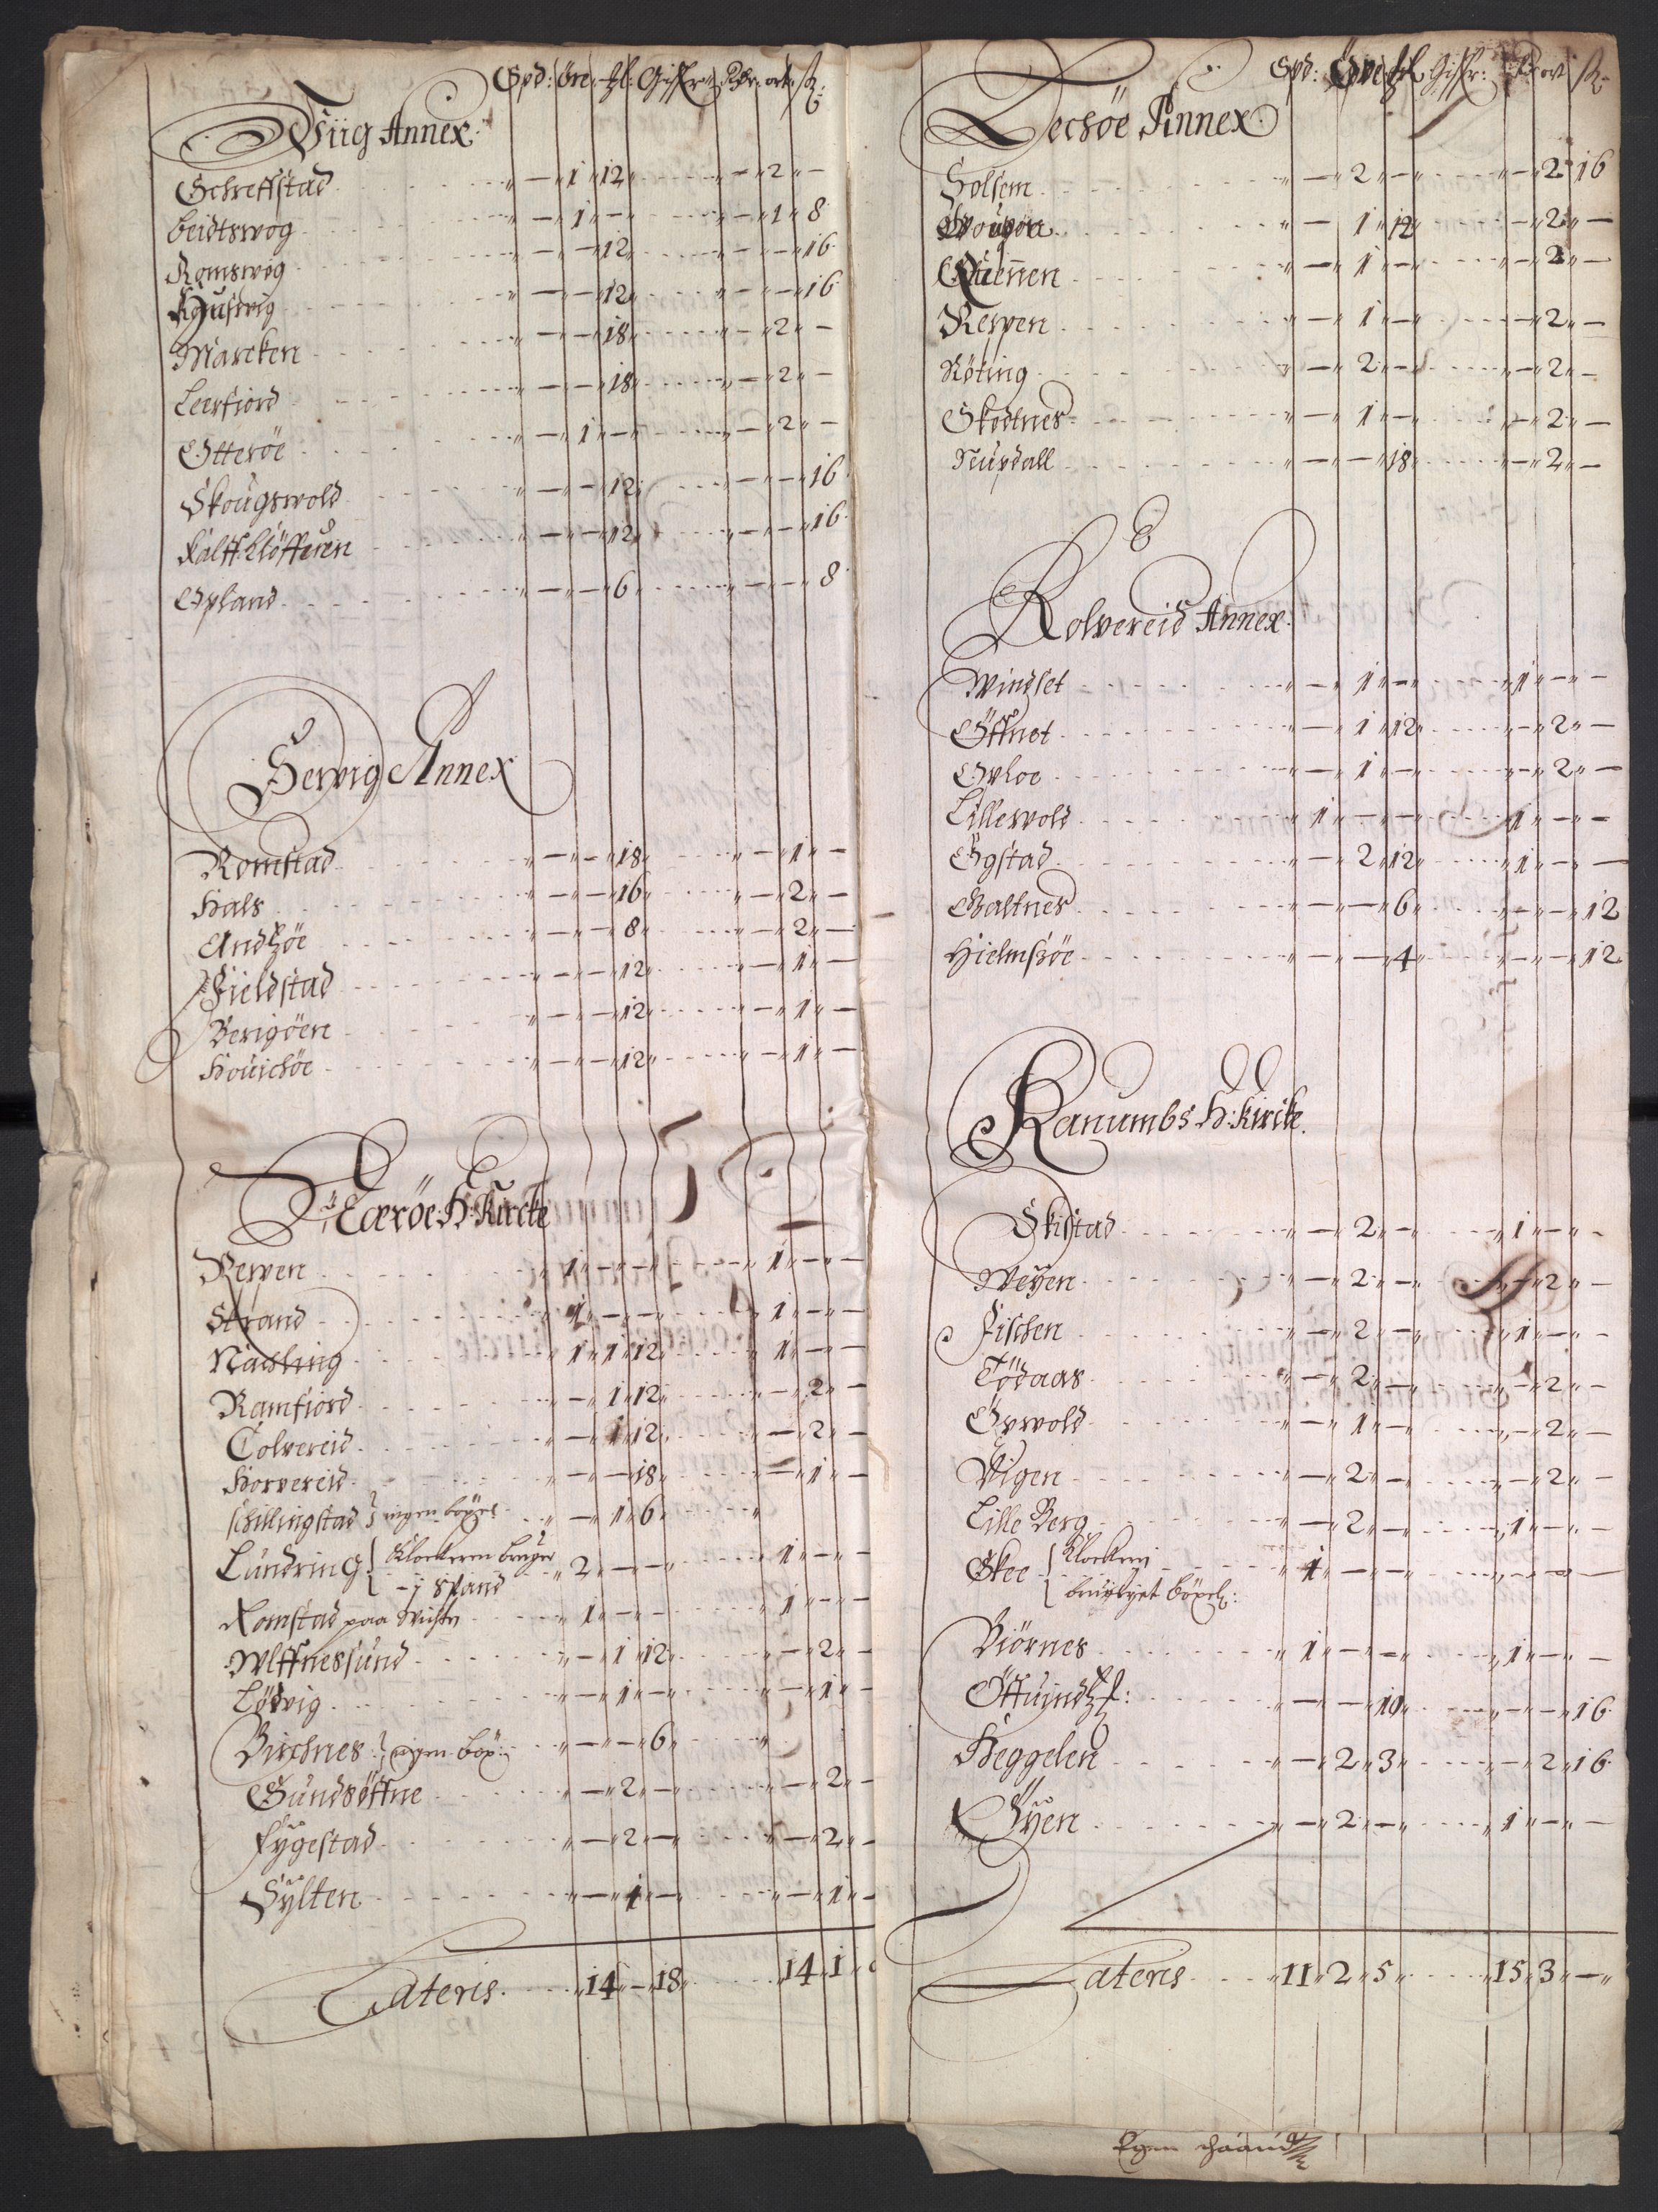 Spd: Öre tl: Giffr: Rdr. ort ß:
Viig Annex:
Schreffstad – 1 12 – 2 –
beidtswog – 1 – – 1 8
Romswog – – 12 – – 16
Husvig – – 12 – – 16
Marcken – – 18 – 2 –
Leerfiord – – 18 – 2 –
Otteröe – 1 – – 2 –
Skougswold – – 12 – – 16
Kalff Klöfferen – – 12 – – 16
Opland – – 6 – – 8
Servig Annex
Romstad – – 18 – 1 –
Hals – – 16 – 2 –
Andzöe – – 8 – 2 –
Fieldstad – – 12 – 1 –
Berigöen – – 12 – 1 –
Houichöe – – 12 – 1 –
Næröe H: Kircke
Rewen 1 – – 1 – –
Strand 1 – – 1 – –
Nachling 1 1 12 1 – –
Ramfiord – 1 12 – 2 –
Tolvereid – 1 12 – 2 –
Horvereid – – 18 – 1 –
schillingstad } ingen böxel – 1 6
Lundring { Klockeren bruger 2 – – 1 – –
– j spand
Romstad paa 1 – – 1 – –
Wlffnessund – 1 12 – 2 –
Lödvig – 1 – – 1 –
Birchnes: } ingen böx: – – 6
Sundsöffne – 2 – – 2 –
Fÿgestad – 2 – – 2 –
Sÿlten – 1 – – 1 –
Lateris 14 – 18 14 1
Spd: Öre tl Giffr: Rd ort ß
Lechöe Annex
Solsem – 2 – – 2 16
– 1 12 – 2 –
Quennen – 1 – – 2 –
Rewen – 1 – – 2 –
Röting – 2 – – 2 –
Skodtnes – 1 – – 2 –
Nurdall – – 18 – 2 –
Kolvereid Annex:
Windset – 1 – 1 – –
Öffnet – 1 12 – 2 –
Oploe – 1 – – 2 –
Lilleswold 1 – – 1 – –
Ögstad – 2 12 1 – –
Galtnes – – 6 – – 12
Hielmsöe – – 4 – – 12
Ranumbs H: Kircke.
Skistad – 2 – 1 – –
Weÿen – 2 – – 2 –
Fischen – 2 – 1 – –
Tödaas – 2 – – 2 –
Opwold – 1 – – 2 –
Wigen – 2 – – 2 –
Lille Berg – 2 – 1 – –
Skee { Klockeri 1 – – – – –
böxel:
Biörnes 1 – – 1 – –
– – 10 – – 16
Heggelen – 2 3 – 2 16
Öÿen – 2 – 1 – –
Lateris 11 2 5 15 3 –